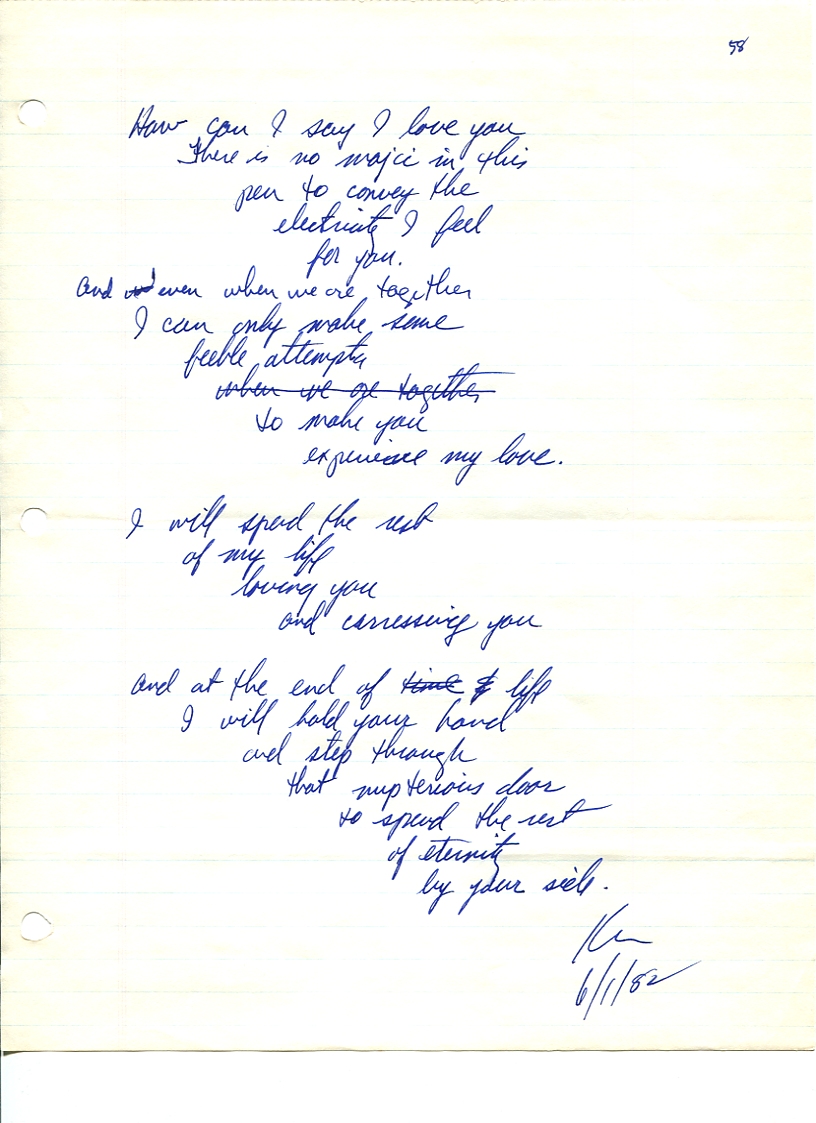 58
How can I say I love you
There is no majic in this
pen to convey the
electricity I feel
for you.
And even when we are together
I can only make some
feeble attempts
when we are together
to make you
experience my love.
I will spend the rest
of my life
loving you
and carressing you
and at the end of time & life
I will hold your hand
and step through
that mysterious door
to spend the rest
of eternity
by your side.
Ken
6/1/82